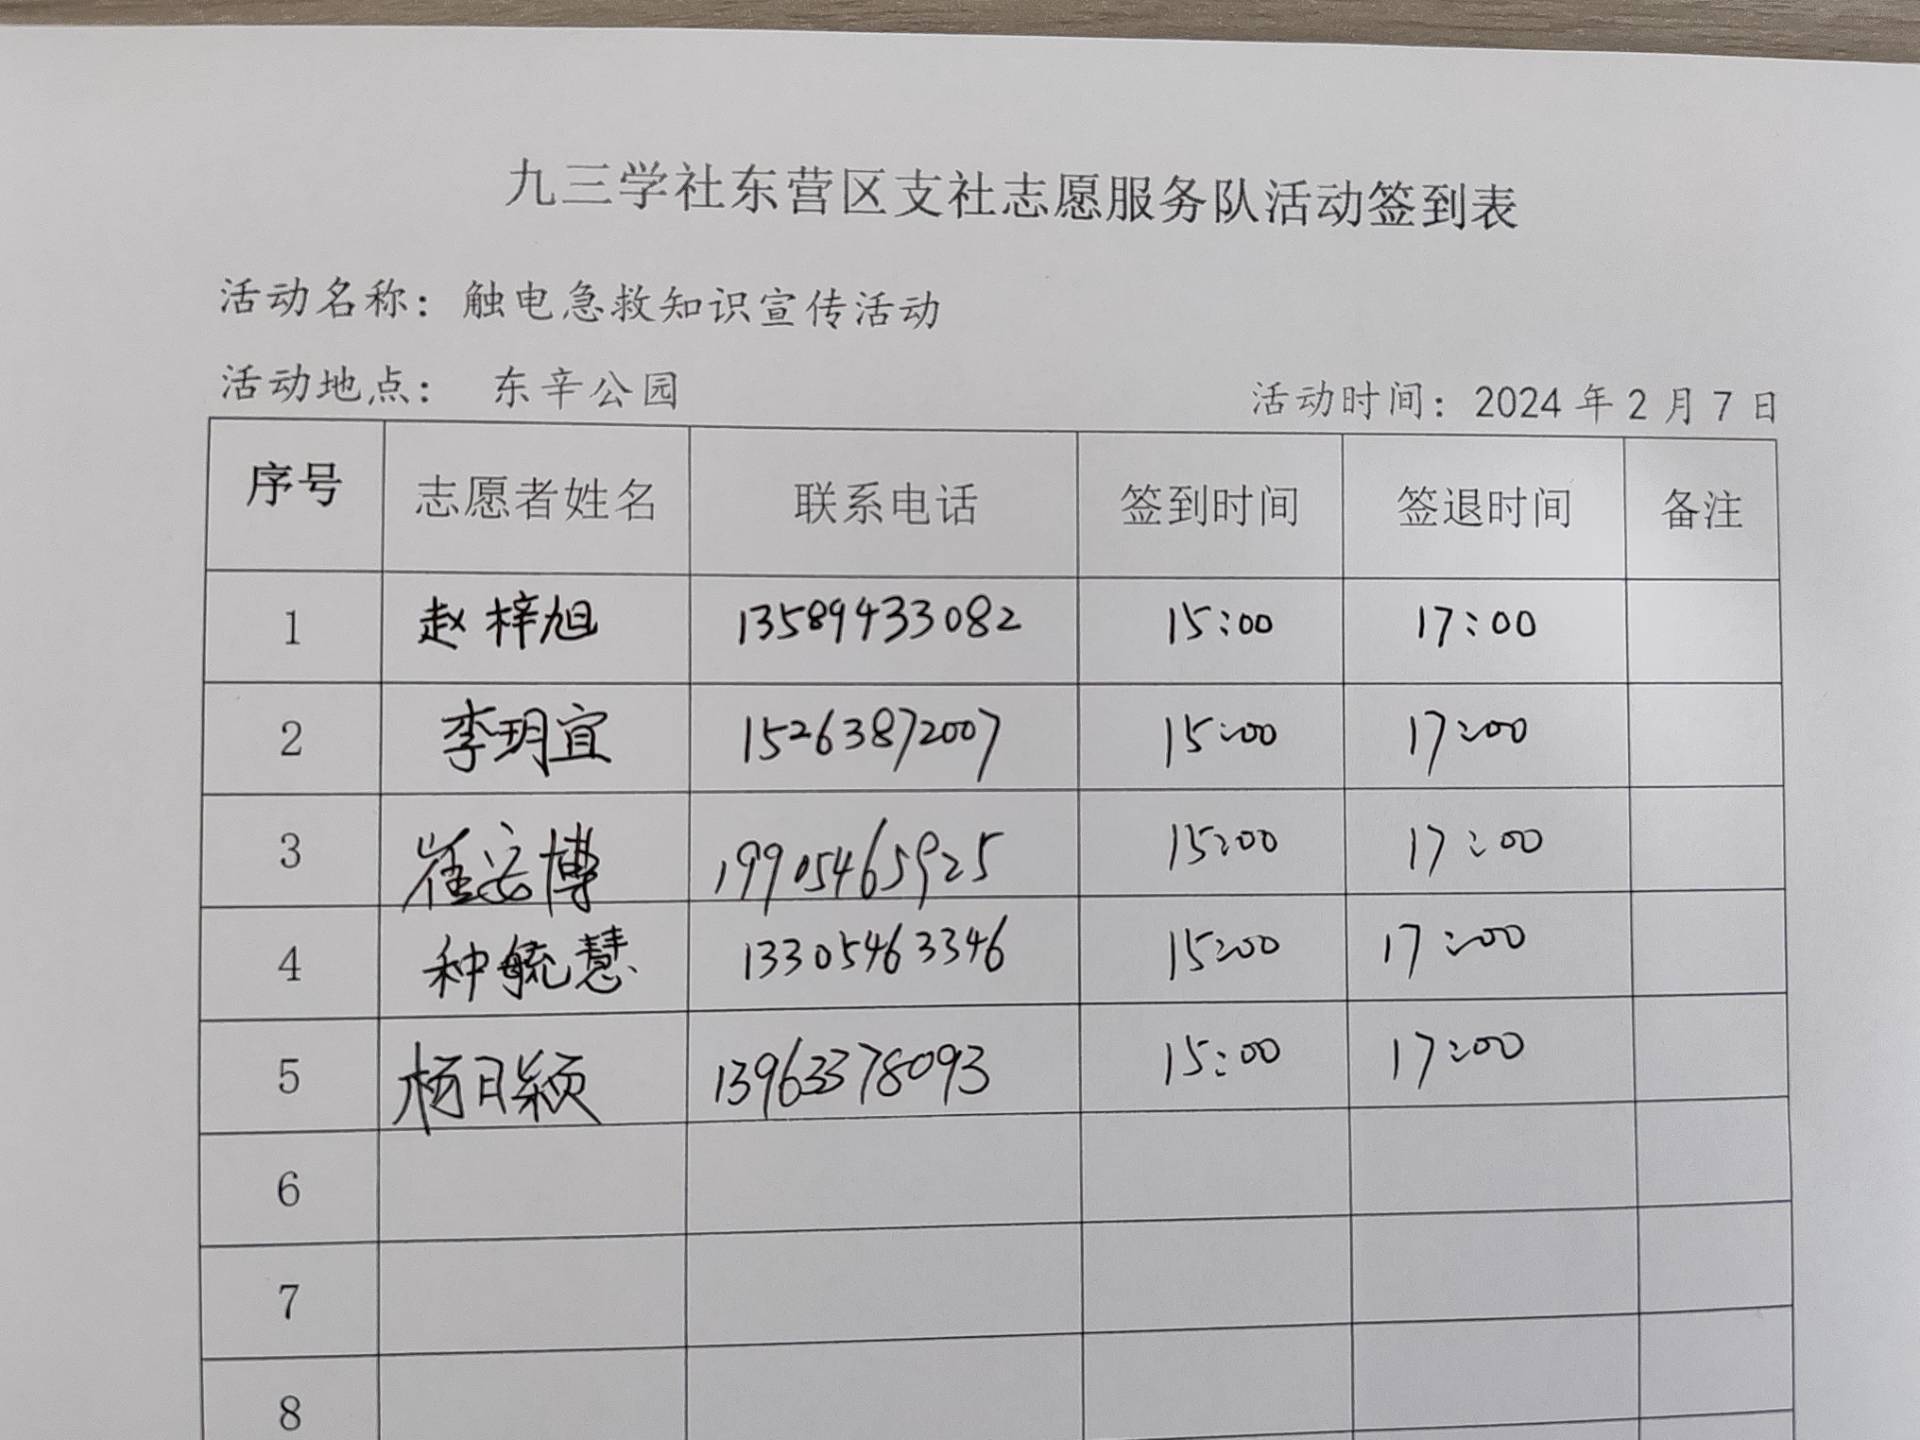 九三学社东营区支社志愿服务队活动签到表
活动名称：触电急救知识宣传活动
活动地点： 东辛公园 活动时间：2024 年 2 月 7 日
序号 志愿者姓名 联系电话 签到时间 签退时间 备注
1 赵梓旭 13589433082 15:00 17:00
2 李玥宜 15263872007 15:00 17:00
3 崔安博 19905465925 15:00 17:00
4 种毓慧 13305463346 15:00 17:00
5 杨日颖 13963378093 15:00 17:00
6
7
8